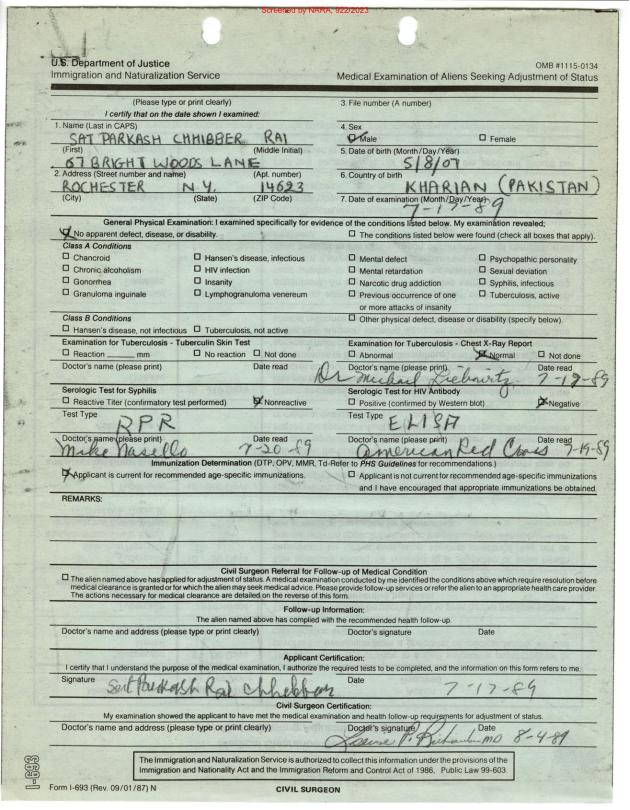 Screened by NARA, 9/22/2023
U.S. Department of Justice
Immigration and Naturalization Service
OMB #1115-0134
Medical Examination of Aliens Seeking Adjustment of Status
(Please type or print clearly)
I certify that on the date shown I examined:
3. File number (A number)
1. Name (Last in CAPS)
SAT PARKASH CHHIBBER RAI
(First) (Middle Initial)
4. Sex
Male Female
67 BRIGHT WOODS LANE
5. Date of birth (Month/Day/Year)
5/8/07
2. Address (Street number and name) (Apt. number)
ROCHESTER N.Y. 14623
(City) (State) (ZIP Code)
6. Country of birth
KHARIAN (PAKISTAN)
7. Date of examination (Month/Day/Year)
7-17-89
General Physical Examination: I examined specifically for evidence of the conditions listed below. My examination revealed;
No apparent defect, disease, or disability. The conditions listed below were found (check all boxes that apply).
Class A Conditions
Chancroid Hansen's disease, infectious Mental defect Psychopathic personality
Chronic alcoholism HIV infection Mental retardation Sexual deviation
Gonorrhea Insanity Narcotic drug addiction Syphilis, infectious
Granuloma inguinale Lymphogranuloma venereum Previous occurrence of one or more attacks of insanity Tuberculosis, active
Class B Conditions
Other physical defect, disease or disability (specify below).
Hansen's disease, not infectious Tuberculosis, not active
Examination for Tuberculosis - Tuberculin Skin Test
Reaction mm No reaction Not done
Doctor's name (please print) Date read
Examination for Tuberculosis - Chest X-Ray Report
Abnormal Normal Not done
Doctor's name (please print) Date read
Dr Michael Liebowitz 7-19-89
Serologic Test for Syphilis
Reactive Titer (confirmatory test performed) Nonreactive
Test Type
RPR
Doctor's name (please print) Date read
Mike Nasello 7-20-89
Serologic Test for HIV Antibody
Positive (confirmed by Western blot) Negative
Test Type
ELISA
Doctor's name (please print) Date read
American Red Cross 7-19-89
Immunization Determination (DTP, OPV, MMR, Td-Refer to PHS Guidelines for recommendations.)
Applicant is current for recommended age-specific immunizations.
Applicant is not current for recommended age-specific immunizations
and I have encouraged that appropriate immunizations be obtained.
REMARKS:
Civil Surgeon Referral for Follow-up of Medical Condition
The alien named above has applied for adjustment of status. A medical examination conducted by me identified the conditions above which require resolution before
medical clearance is granted or for which the alien may seek medical advice. Please provide follow-up services or refer the alien to an appropriate health care provider.
The actions necessary for medical clearance are detailed on the reverse of this form.
Follow-up Information:
The alien named above has complied with the recommended health follow-up.
Doctor's name and address (please type or print clearly) Doctor's signature Date
Applicant Certification:
I certify that I understand the purpose of the medical examination, I authorize the required tests to be completed, and the information on this form refers to me.
Signature Sat Parkash Rai Chhibber Date 7-17-89
Civil Surgeon Certification:
My examination showed the applicant to have met the medical examination and health follow-up requirements for adjustment of status.
Doctor's name and address (please type or print clearly) Doctor's signature Date
MD 8-4-89
The Immigration and Naturalization Service is authorized to collect this information under the provisions of the
Immigration and Nationality Act and the Immigration Reform and Control Act of 1986, Public Law 99-603.
I-693
Form I-693 (Rev. 09/01/87) N
CIVIL SURGEON